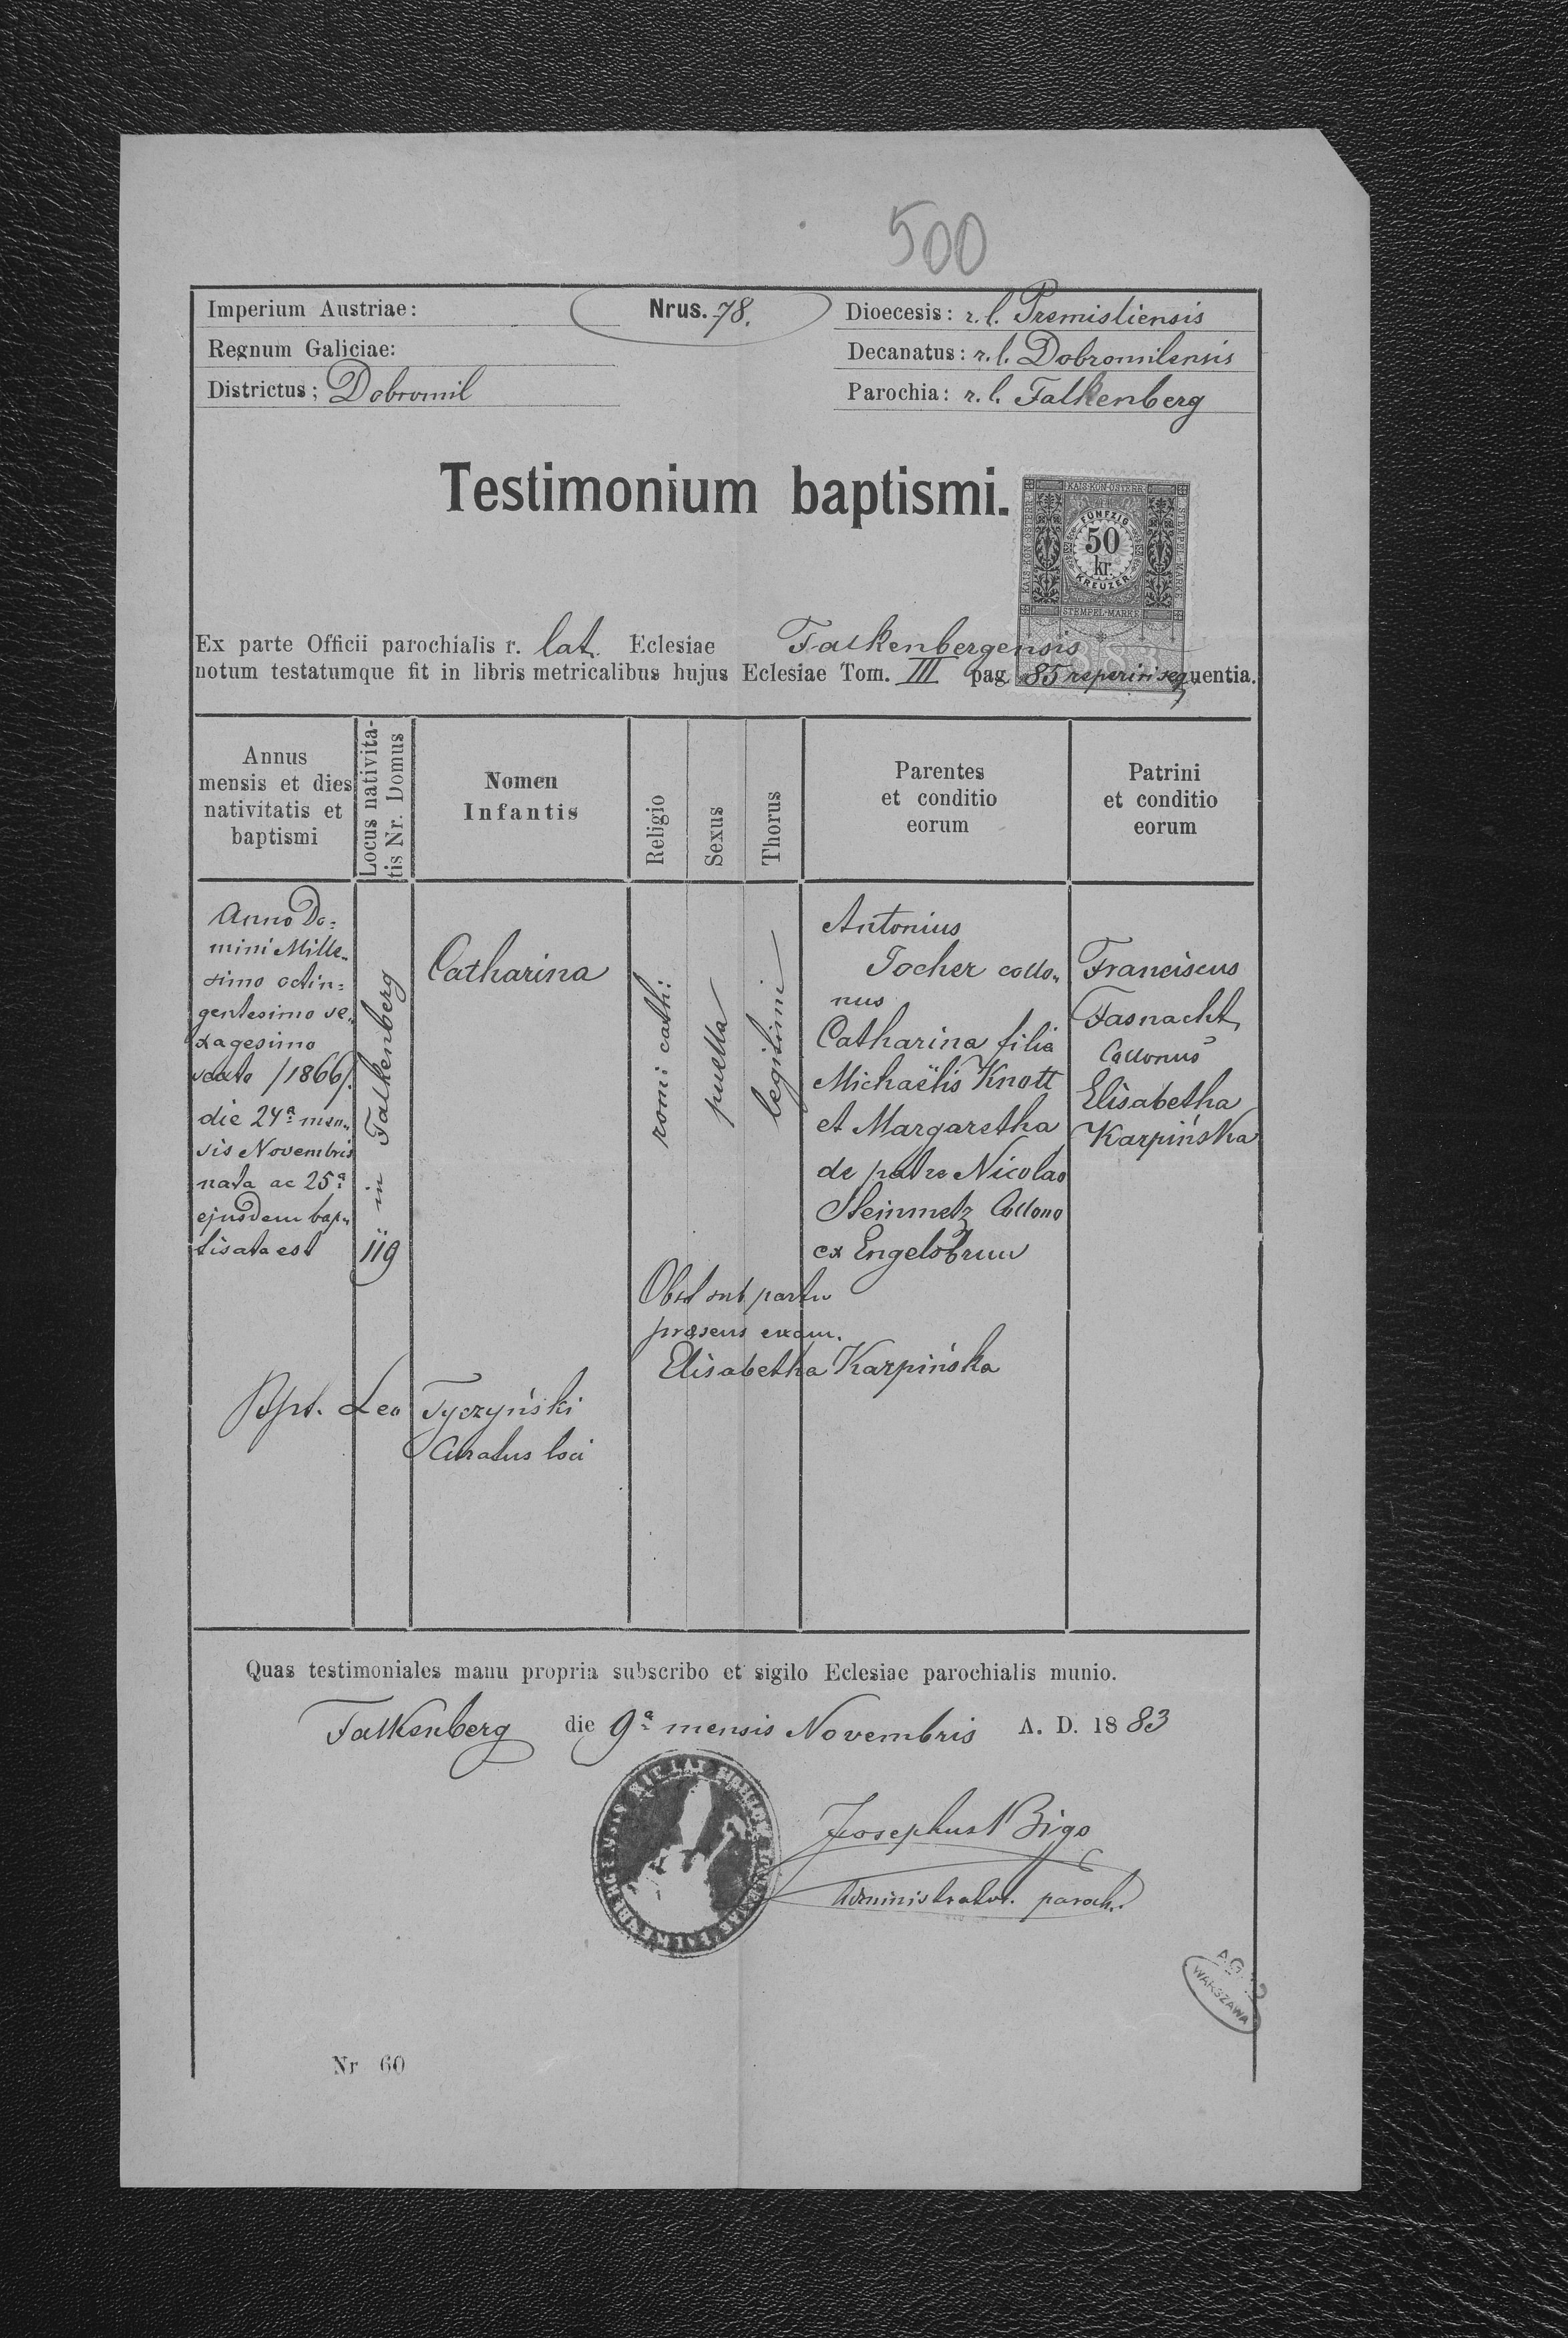 500
Imperium Austriae:
Nrus. 78.
Dioecesis: r. l. Premisliensis
Regnum Galiciae:
Decanatus: r. l. Dobromilensis
Districtus; Dobromil
Parochia: r. l. Falkenberg
Testimonium baptismi.
KAIS·KÖN·ÖSTERR·
FÜNFZIG
50
kr.
KREUZER
STEMPEL-MARKE
Ex parte Officii parochialis r. lat. Eclesiae Falkenbergensis
notum testatumque fit in libris metricalibus hujus Eclesiae Tom. III pag. 85 reperiri sequentia.
Annus
mensis et dies
nativitatis et
baptismi
Locus nativita-
tis Nr. Domus
Nomen
Infantis
Religio
Sexus
Thorus
Parentes
et conditio
eorum
Patrini
et conditio
eorum
Anno Do=
mini Mille„
simo octin=
gentesimo se„
xagesimo
sexto /1866/.
die 24ª men„
sis Novembris
nata ac 25ª
ejusdem bap„
tisata est
119 in Falkenberg
Catharina
rom: cath:
puella
legitimi
Antonius
Tocher collo„
nus
Catharina filia
Michaëlis Knott
et Margaretha
de patre Nicolao
Steinmetz Collono
ex Engelsbrun
Franciscus
Fasnacht
Collonus
Elisabetha
Karpińska
Obst sub partu
praesens exam.
Elisabetha Karpińska
Bpt. Leo Tyczyński
Curatus loci
Quas testimoniales manu propria subscribo et sigilo Eclesiae parochialis munio.
Falkenberg die 9ª mensis Novembris A. D. 1883
Josephus Bigo
Administrator. paroch.
WARSZAWA
Nr 60